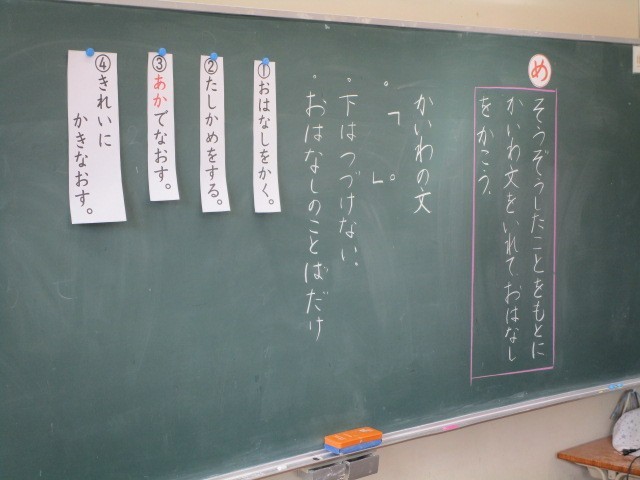 め
そうぞうしたことをもとに
かいわ文をいれて、おはなし
をかこう。
かいわの文
。「　　。」
。下はつづけない。
。おはなしのことばだけ
①おはなしをかく。
②たしかめをする。
③あかでなおす。
④きれいに
かきなおす。